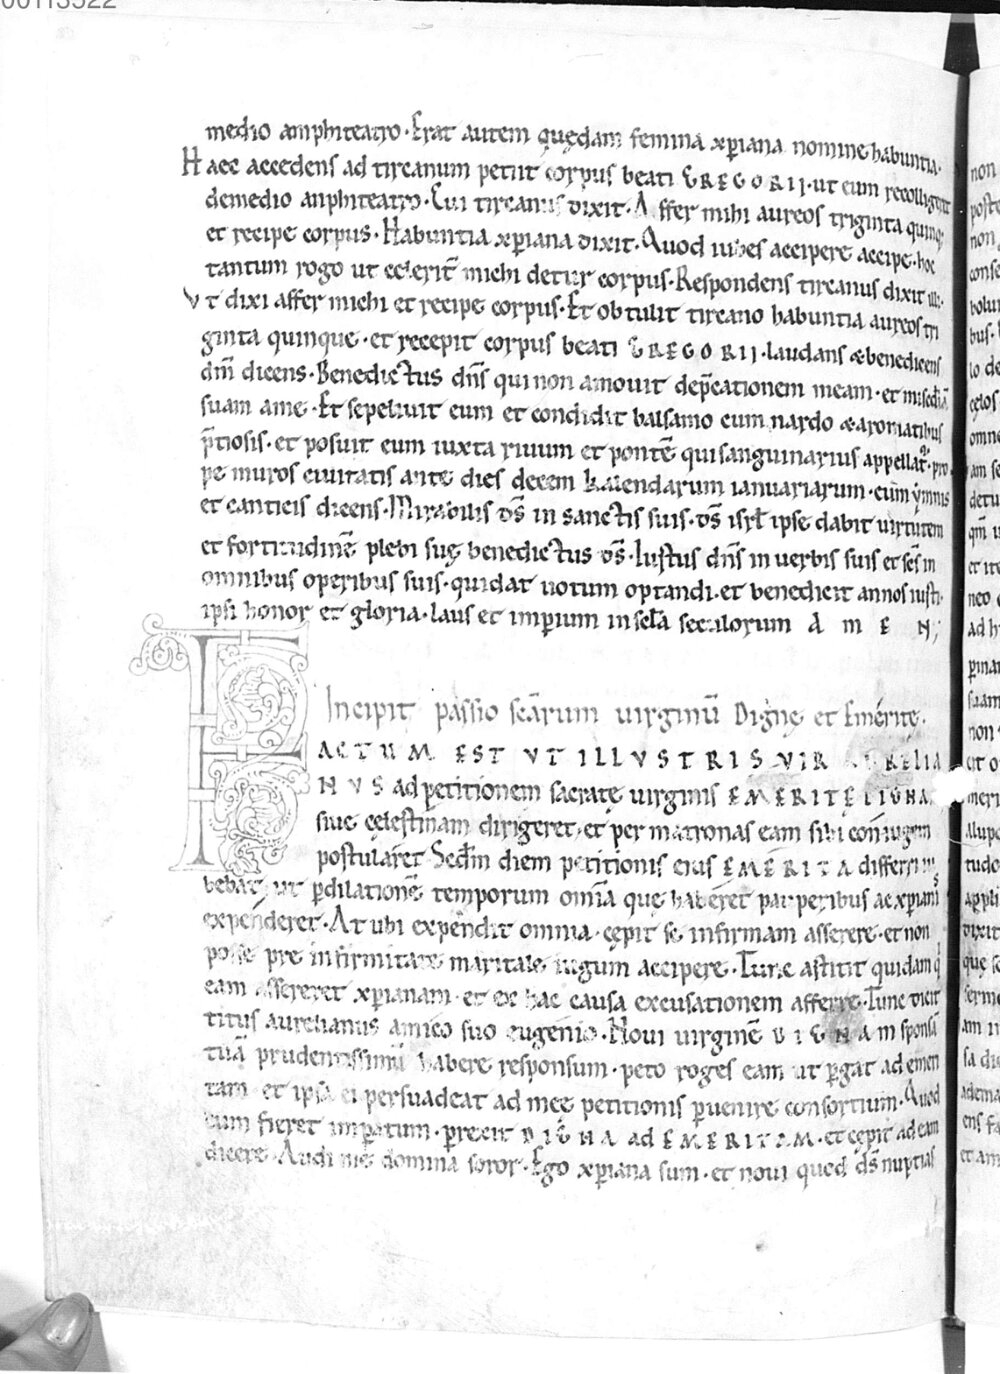 00113522
medio amphiteatro · Erat autem quędam femina xp̄iana nomine habuntia ·
Haec accedens ad tircanum petiit corpus beati GREGORII · ut eum recolligeret
de medio anphiteatro · Cui tircanus dixit · Affer mihi aureos triginta quinq;
et recipe corpus · Habuntia xp̄iana dixit · Quod iubes accipere accipe · hoc
tantum rogo ut celerit̄ michi detur corpus · Respondens tircanus dixit illi ·
Vt dixi affer michi et recipe corpus · Et obtulit tircano habuntia aureos tri
ginta quinque · et recepit corpus beati GREGORII · laudans & benedicens
dn̄m dicens · Benedictus dn̄s qui non amouit dep̄cationem meam · et misc̄diā
suam a me · Et sepeliuit eum et condidit balsamo cum nardo & aromatibus
p̄tiosis · et posuit eum iuxta riuum et pontē qui sanguinarius appellat̄ · pro
pe muros ciuitatis ante dies decem kalendarum ianuariarum · cum ymnis
et canticis dicens · Mirabilis ds̄ in sanctis suis · ds̄ isrl̄ ipse dabit uirtutem
et fortitudinē plebi suę benedictus ds̄ · Iustus dn̄s in uerbis suis et sc̄s in
omnibus operibus suis · qui dat uotum optandi · et benedicit annos iusti ·
ipsi honor et gloria · laus et imperium in scl̄a seculorum AMEN;
Incipit passio scārum uirginū Digne et Emerite ·
FACTUM EST VT ILLVSTRIS VIR AURELIA
NVS ad petitionem sacrate uirginis EMERITE
siue celestinam dirigeret · et per matronas eam sibi coniugem
postularet · Sed in diem petitionis eius EMERITA differri iu
bebat · ut p dilationē temporum omīa que haberet pauperibus ac xp̄ianis
expenderet · At ubi expendit omnia · cępit se infirmam asserere · et non
posse pre infirmitate maritale iugum accipere · Tunc astitit quidam q̄
eam assereret xp̄ianam · et ex hac causa excusationem afferre · Tunc dicit
titus aurelianus amico suo eugenio · Noui uirginē DIGNAM sponsā
tuā prudentissimū habere responsum · peto roges eam ut pergat ad emeri
tam et ipsa ei persuadeat ad meę petitionis puenire consortium · Quod
cum fieret impetratum · prexit DIGNA ad EMERITAM · et cępit ad eam
dicere · Audi me domina soror · Ego xp̄iana sum · et noui quod ds̄ nuptias